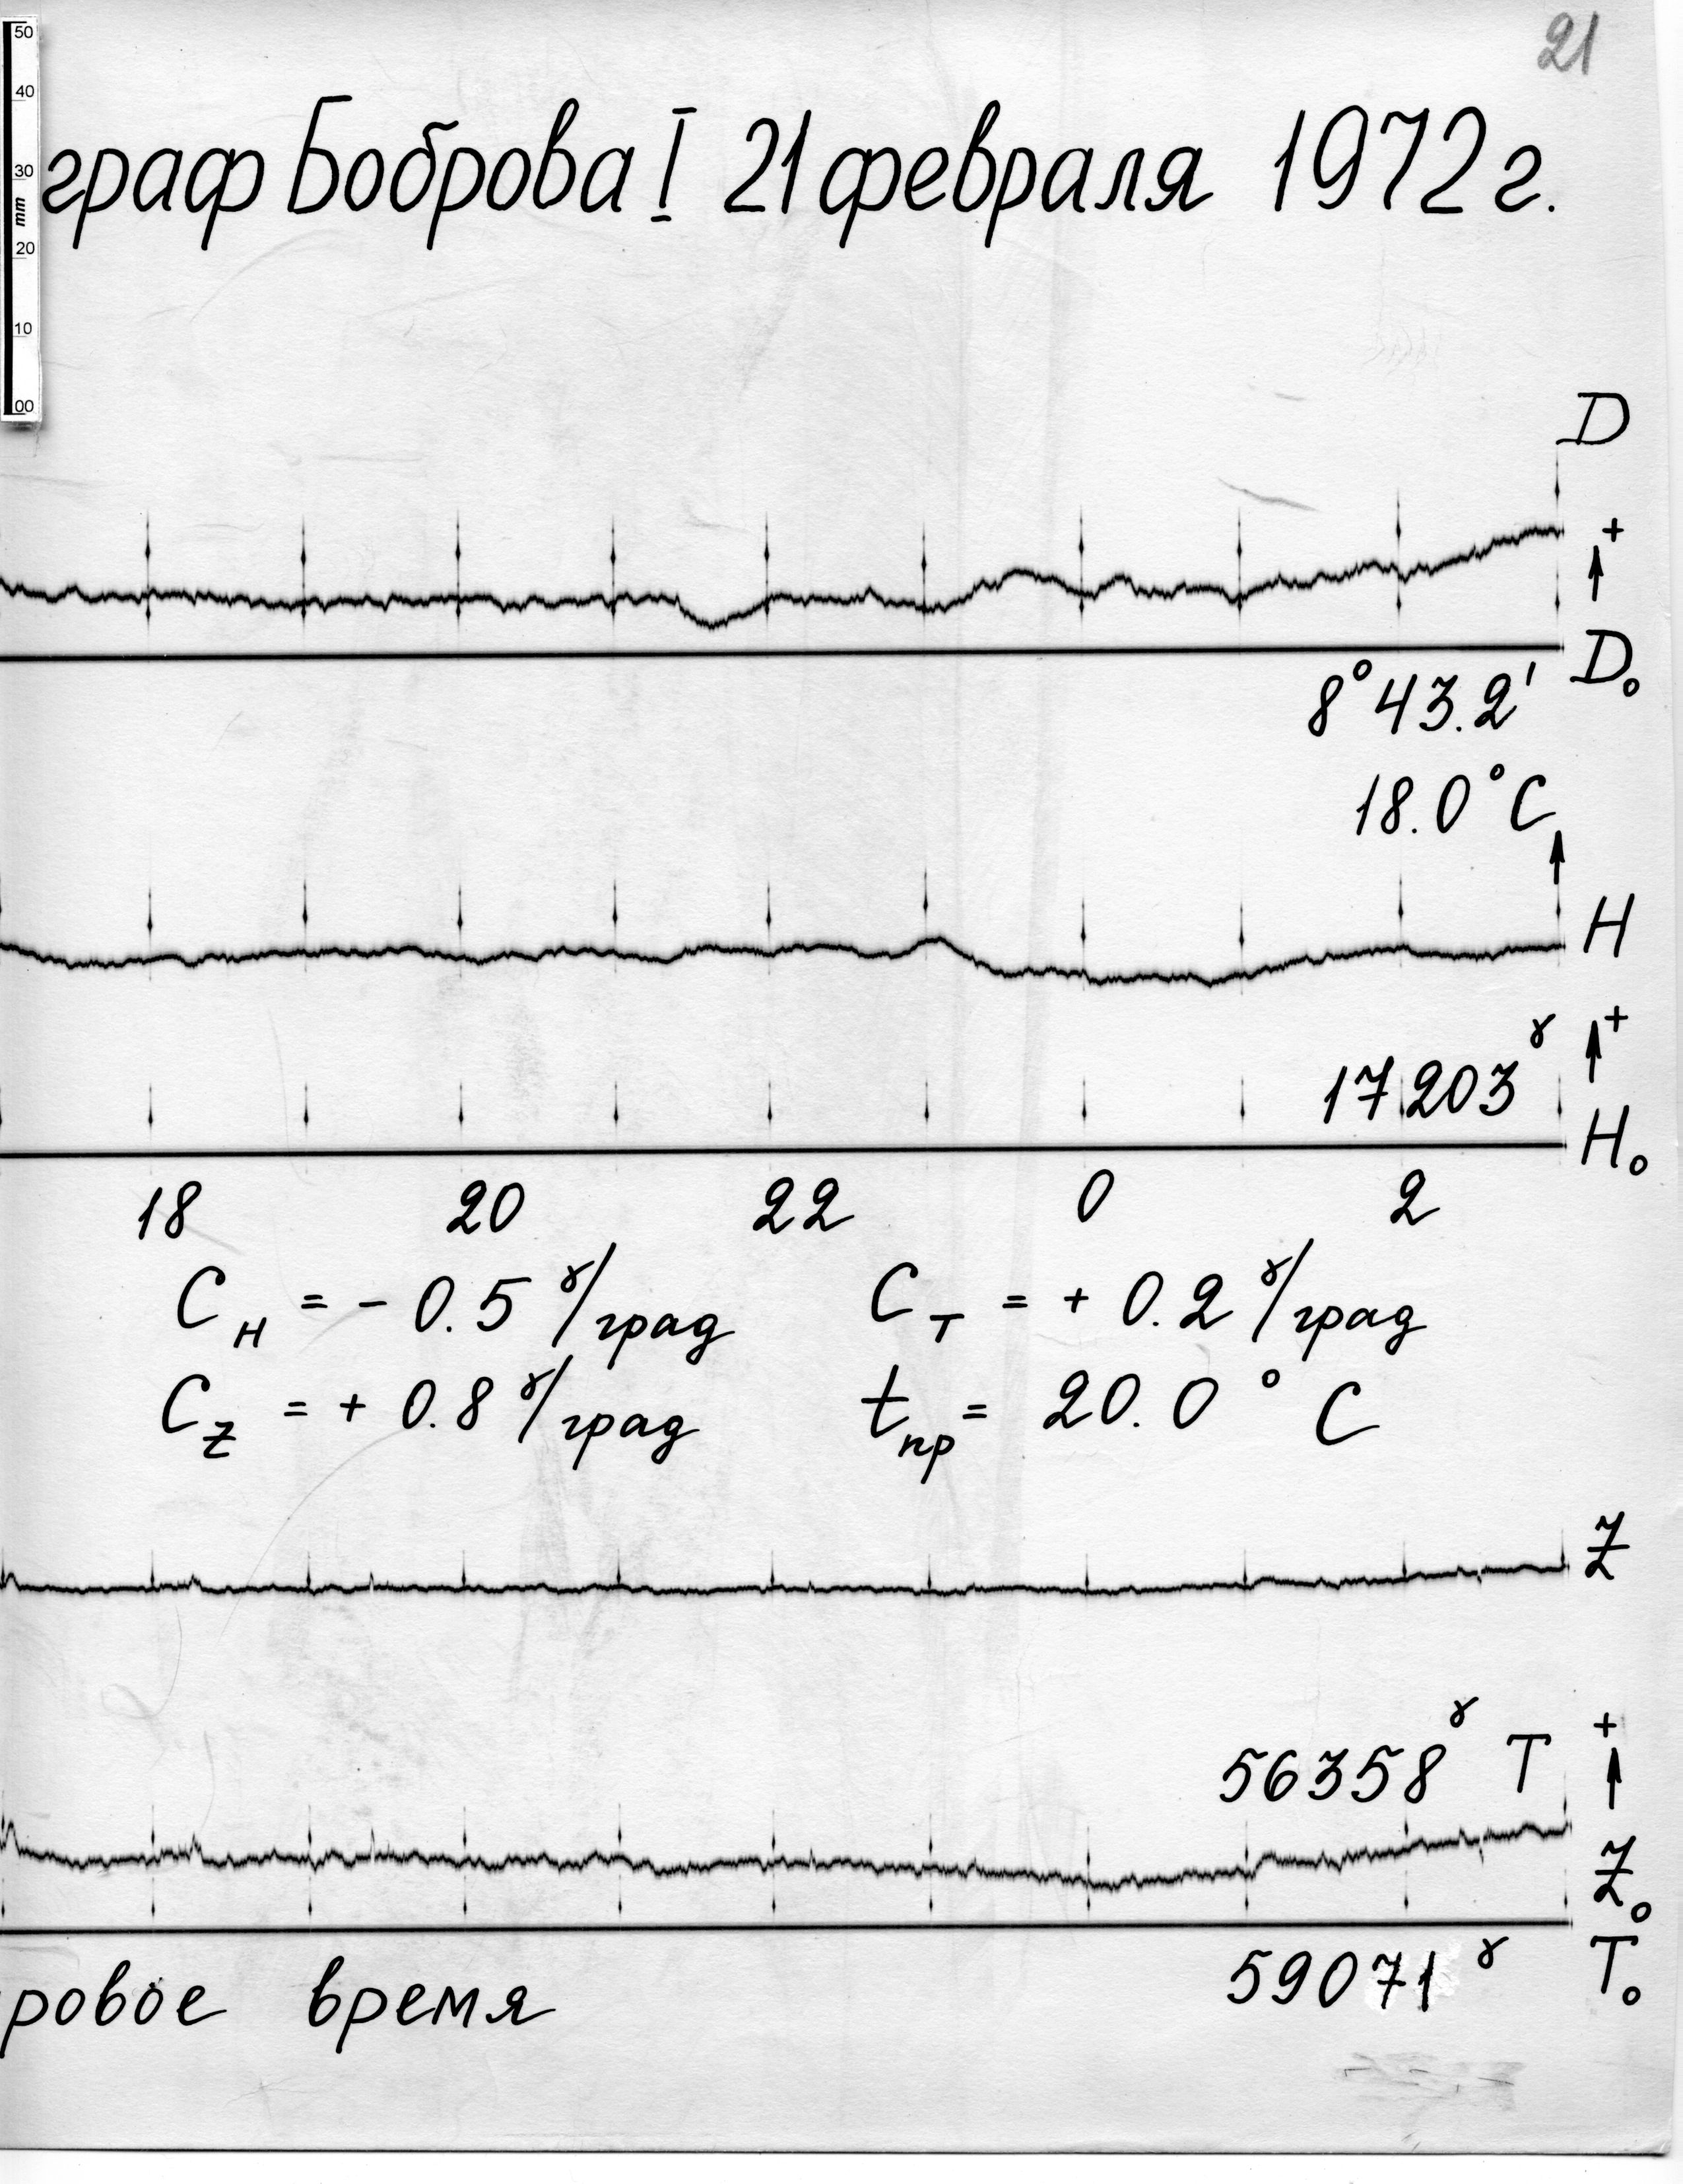 21
50
40
30
mm
20
10
00
граф Боброва I 21 февраля 1972 г.
D
+
D₀
8°43.2'
18.0°C
H
+
17203ᵞ
H₀
18 20 22 0 2
C_H = - 0.5 ᵞ/град C_T = + 0.2 ᵞ/град
C_Z = + 0.8 ᵞ/град t_пр = 20.0 °C
Z
+
56358ᵞ T
Z₀
59071ᵞ T₀
ровое время